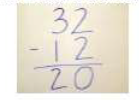 32
- 12
20